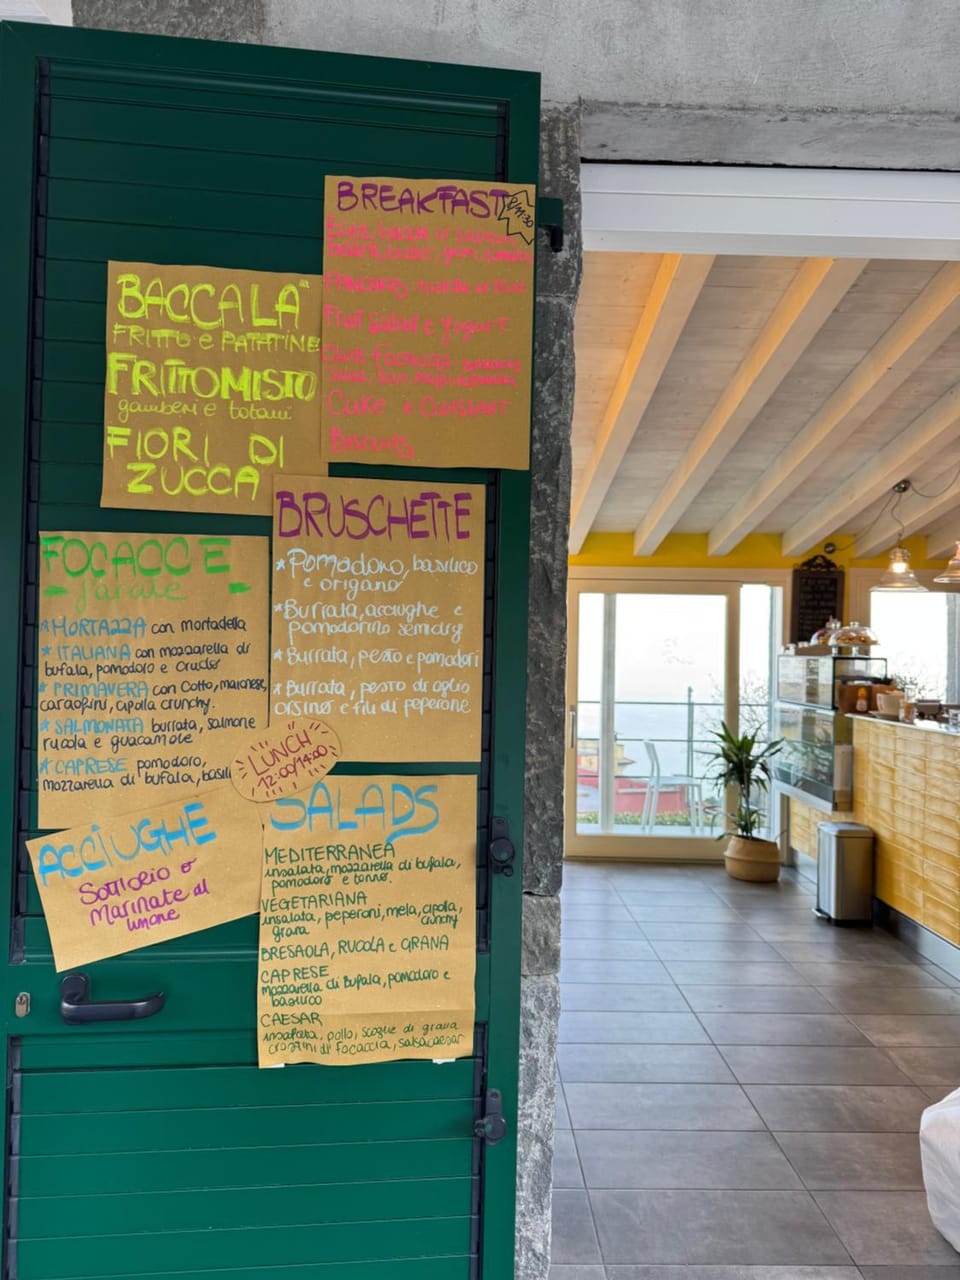 BREAKFAST
8/11:30
PANCAKES
Fruit salad e yogurt
Cake e Croissant
Biscuits
BACCALA'
FRITTO e PATATINE
FRITTOMISTO
gamberi e totani
FIORI DI
ZUCCA
BRUSCHETTE
*Pomodoro, basilico
e origano
*Burrata, acciughe e
pomodorino semidry
*Burrata, pesto e pomodori
*Burrata, pesto di aglio
orsino e fili di peperone
FOCACCE
- farcite -
*MORTAZZA con mortadella
*ITALIANA con mozzarella di
bufala, pomodoro e crudo
*PRIMAVERA con Cotto, maionese,
carciofini, cipolla crunchy.
*SALMONATA burrata, salmone
rucola e guacamole
*CAPRESE pomodoro,
mozzarella di bufala, basili
LUNCH
12:00/14:00
ACCIUGHE
Sottolio o
Marinate al
limone
SALADS
MEDITERRANEA
insalata, mozzarella di bufala,
pomodoro e tonno.
VEGETARIANA
insalata, peperoni, mela, cipolla,
crunchy
grana
BRESAOLA, RUCOLA e GRANA
CAPRESE
mozzarella di bufala, pomodoro e
basilico
CAESAR
insalata, pollo, scaglie di grana
crostini di focaccia, salsa caesar